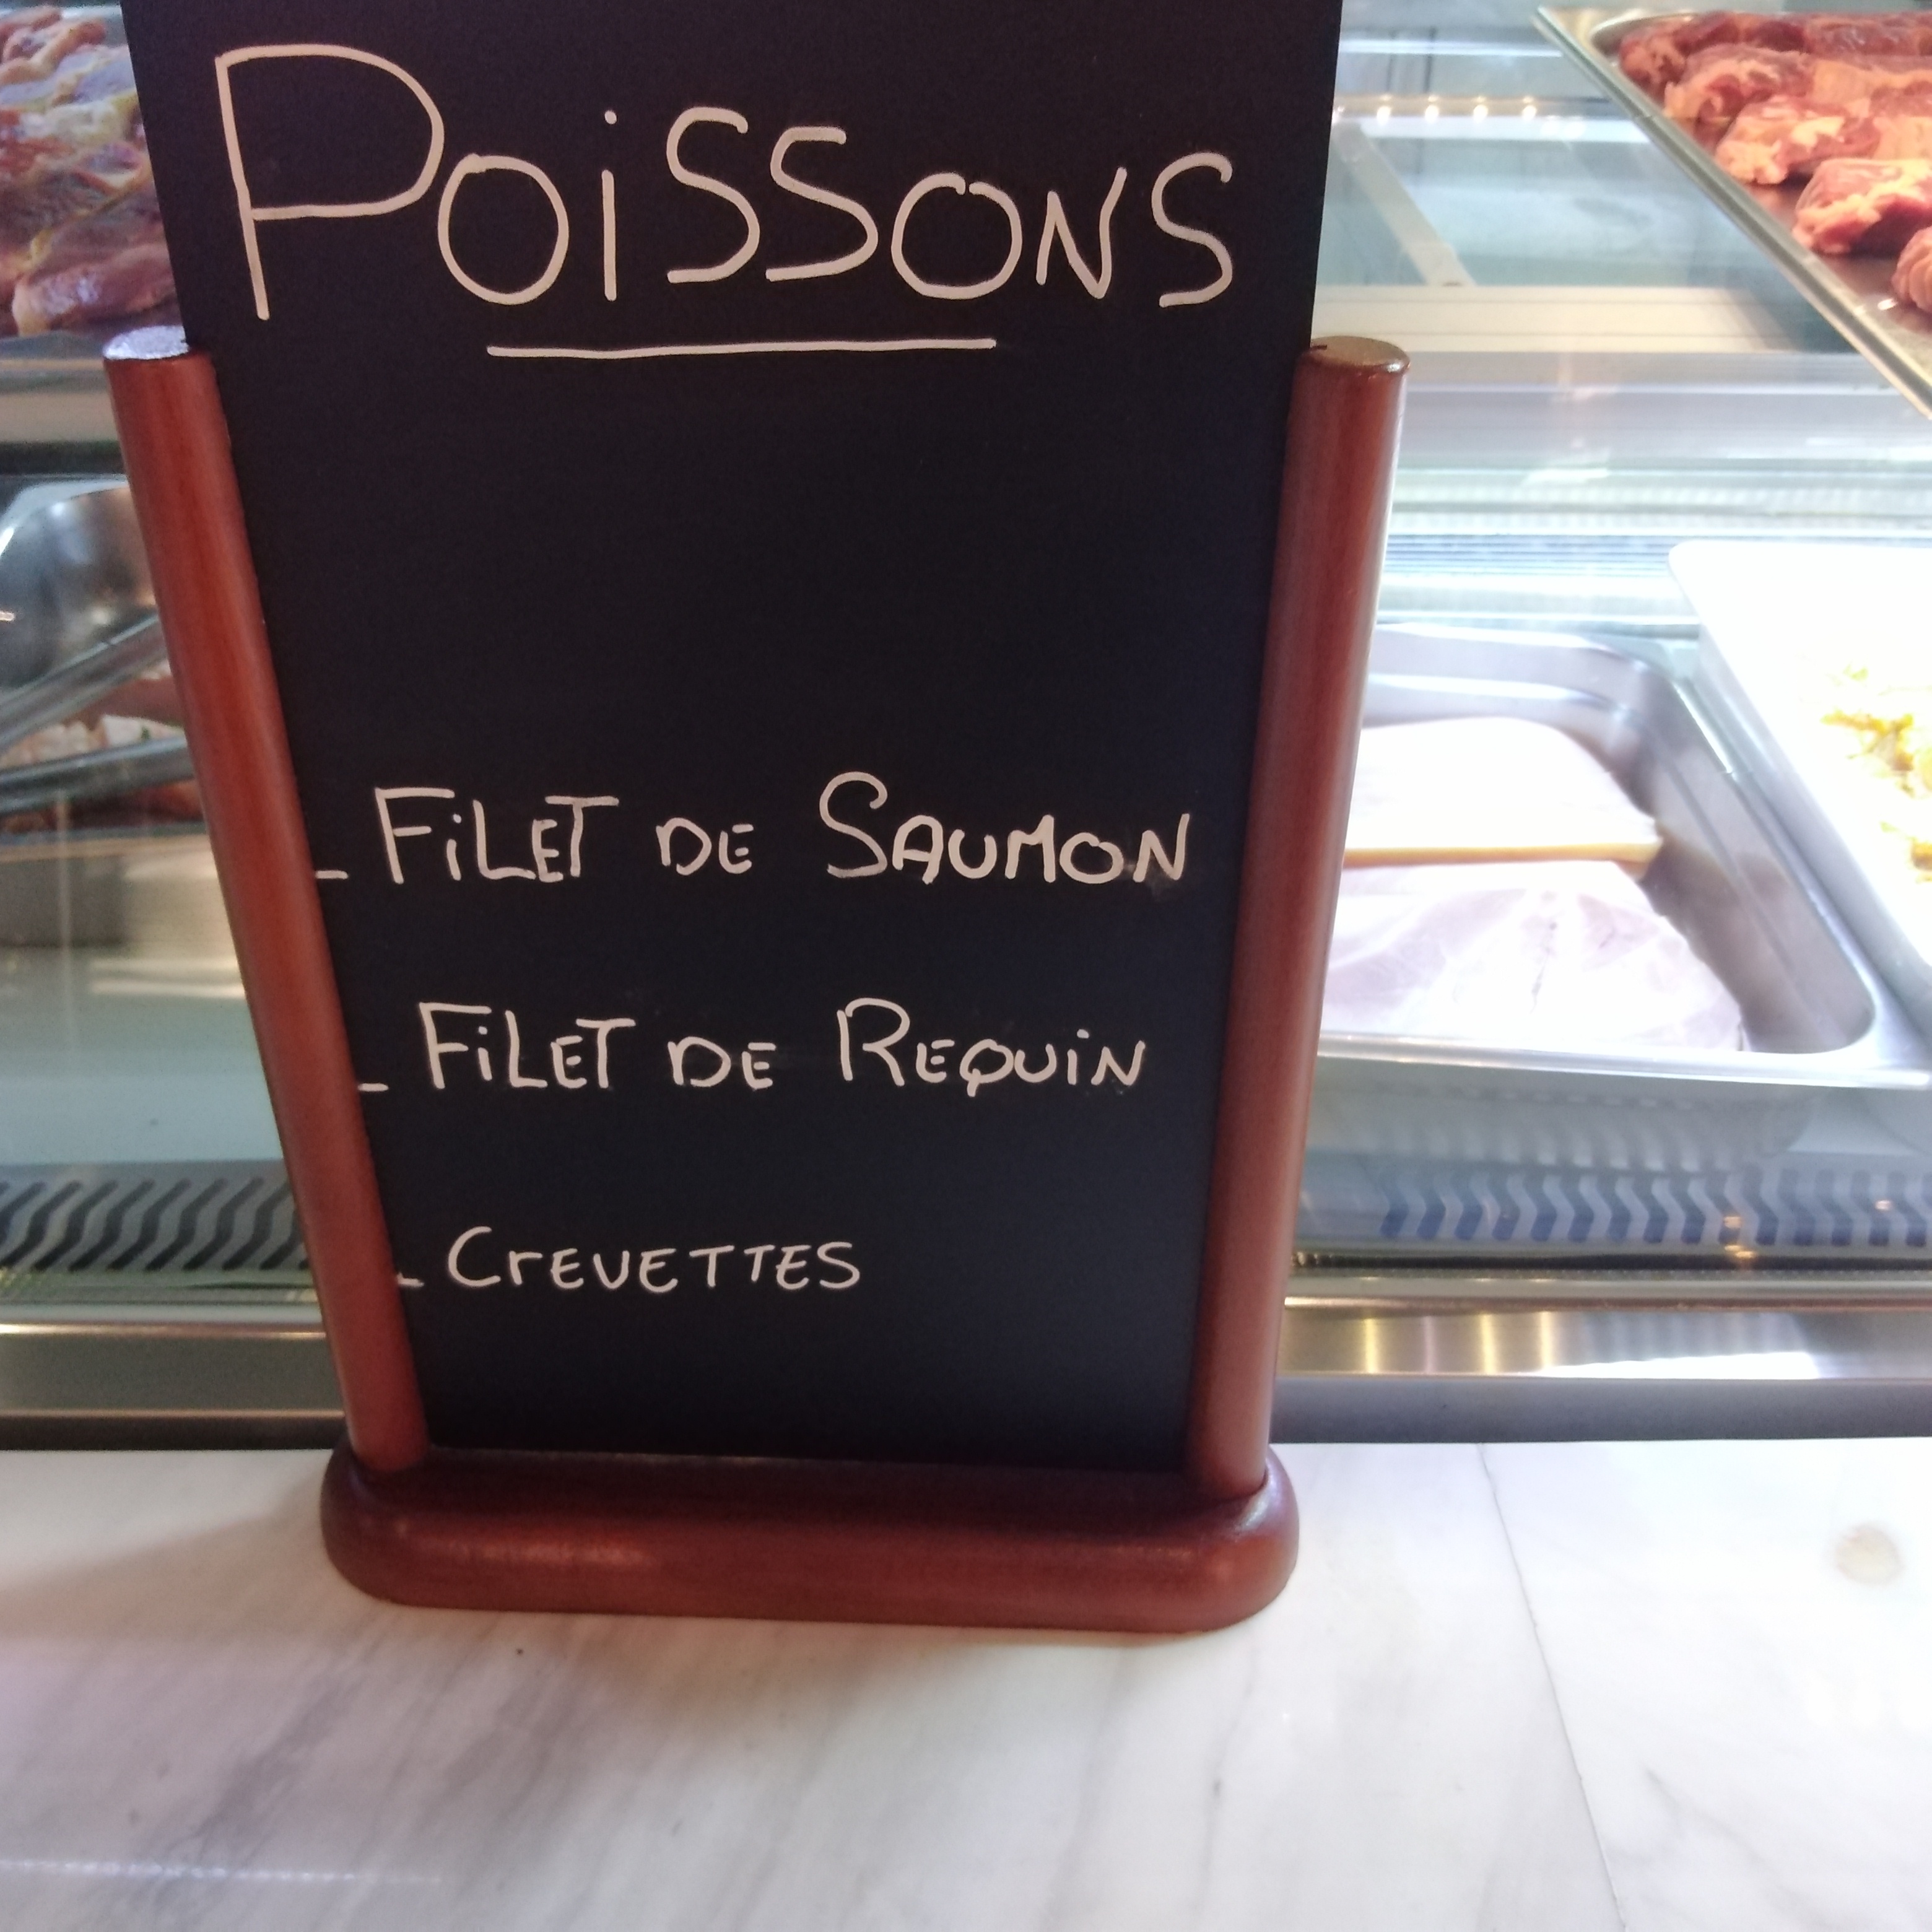 Poissons
- Filet de Saumon
- Filet de Requin
- Crevettes